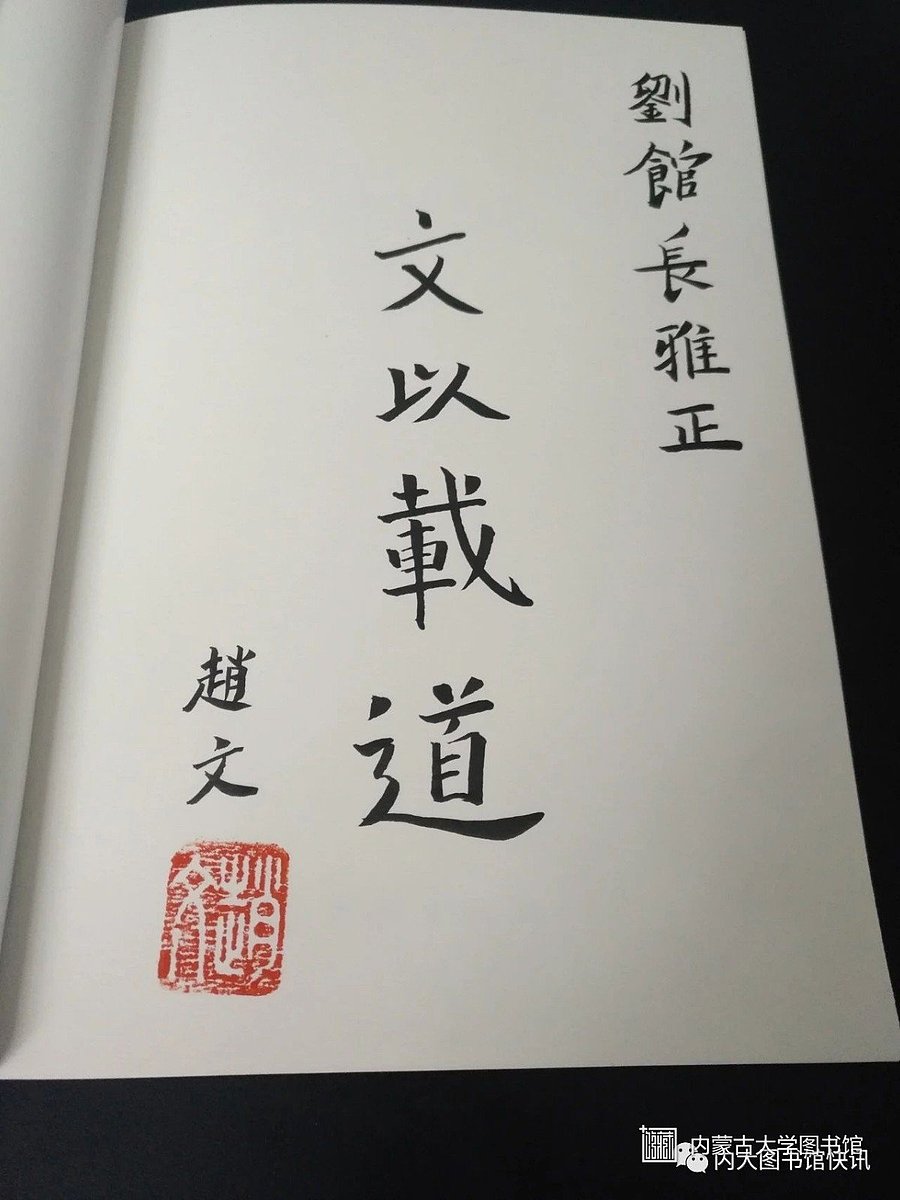 劉館長雅正
文以載道
趙文
内蒙古大学图书馆
内大图书馆快讯